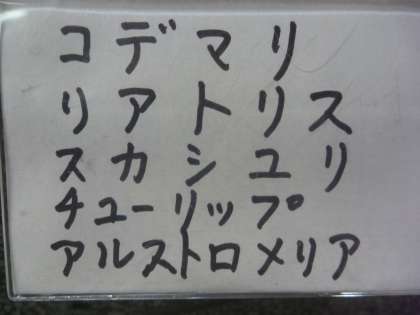 コデマリ
リアトリス
スカシユリ
チューリップ
アルストロメリア